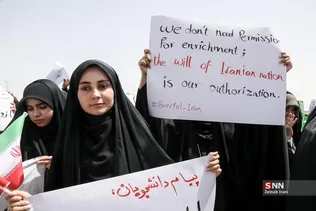 We don't need Permission
for enrichment;
the will of Iranian nation
is our authorization.
#Powerful_Iran
پیام دانشجویان:
SNN
Zeinab Irani